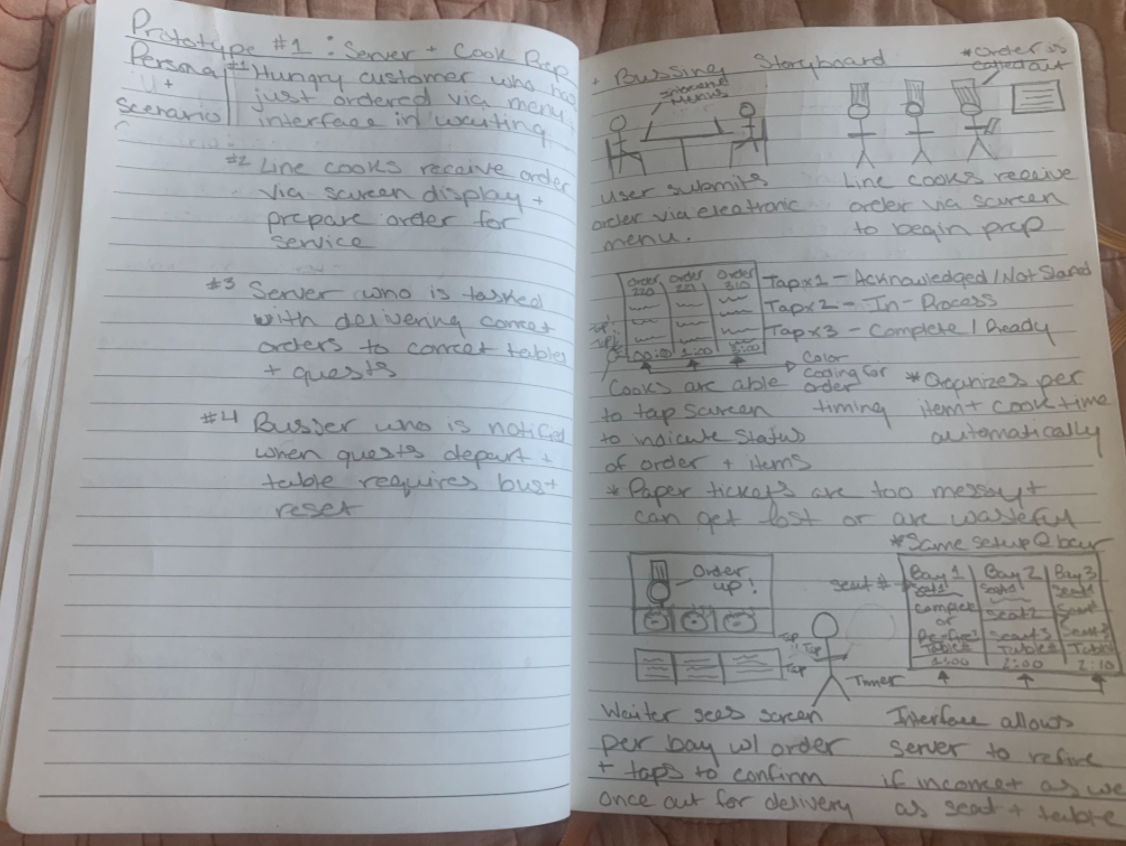 Prototype #1 : Server + Cook Prep
Persona
+
Scenario
#1 Hungry customer who has
just ordered via menu
interface in waiting
#2 Line cooks receive order
via screen display +
prepare order for
service
#3 Server who is tasked
with delivering correct
orders to correct tables
+ guests
#4 Busser who is notified
when guests depart +
table requires bus +
reset
+ Bussing Storyboard
*Order is
called out
Menus
User submits
order via electronic
menu.
Line cooks receive
order via screen
to begin prep
Order
220
Order
221
Order
310
Tapx1 - Acknowledged/Not Started
Tapx2 - In-Process
Tapx3 - Complete / Ready
00:00 1:00
Color
coding for
order
timing
Cooks are able
to tap screen
to indicate status
of order + items
*Organizes per
item + cook time
automatically
* Paper tickets are too messy +
can get lost or are wasteful
*Same setup @ bar
Order
up!
Seat #
Bay 1
Seat 1
Complete
or
Re-fire?
Table#
1:00
Bay 2
Seat 1
Seat 2
Seat 3
Table#
2:00
Bay 3
Seat 1
Seat 2
Seat 3
Table#
2:10
Tap
Tap
Tap
Timer
Waiter sees screen
per bay w/ order
+ taps to confirm
once out for delivery
Interface allows
server to refire
if incorrect as we
as seat + table